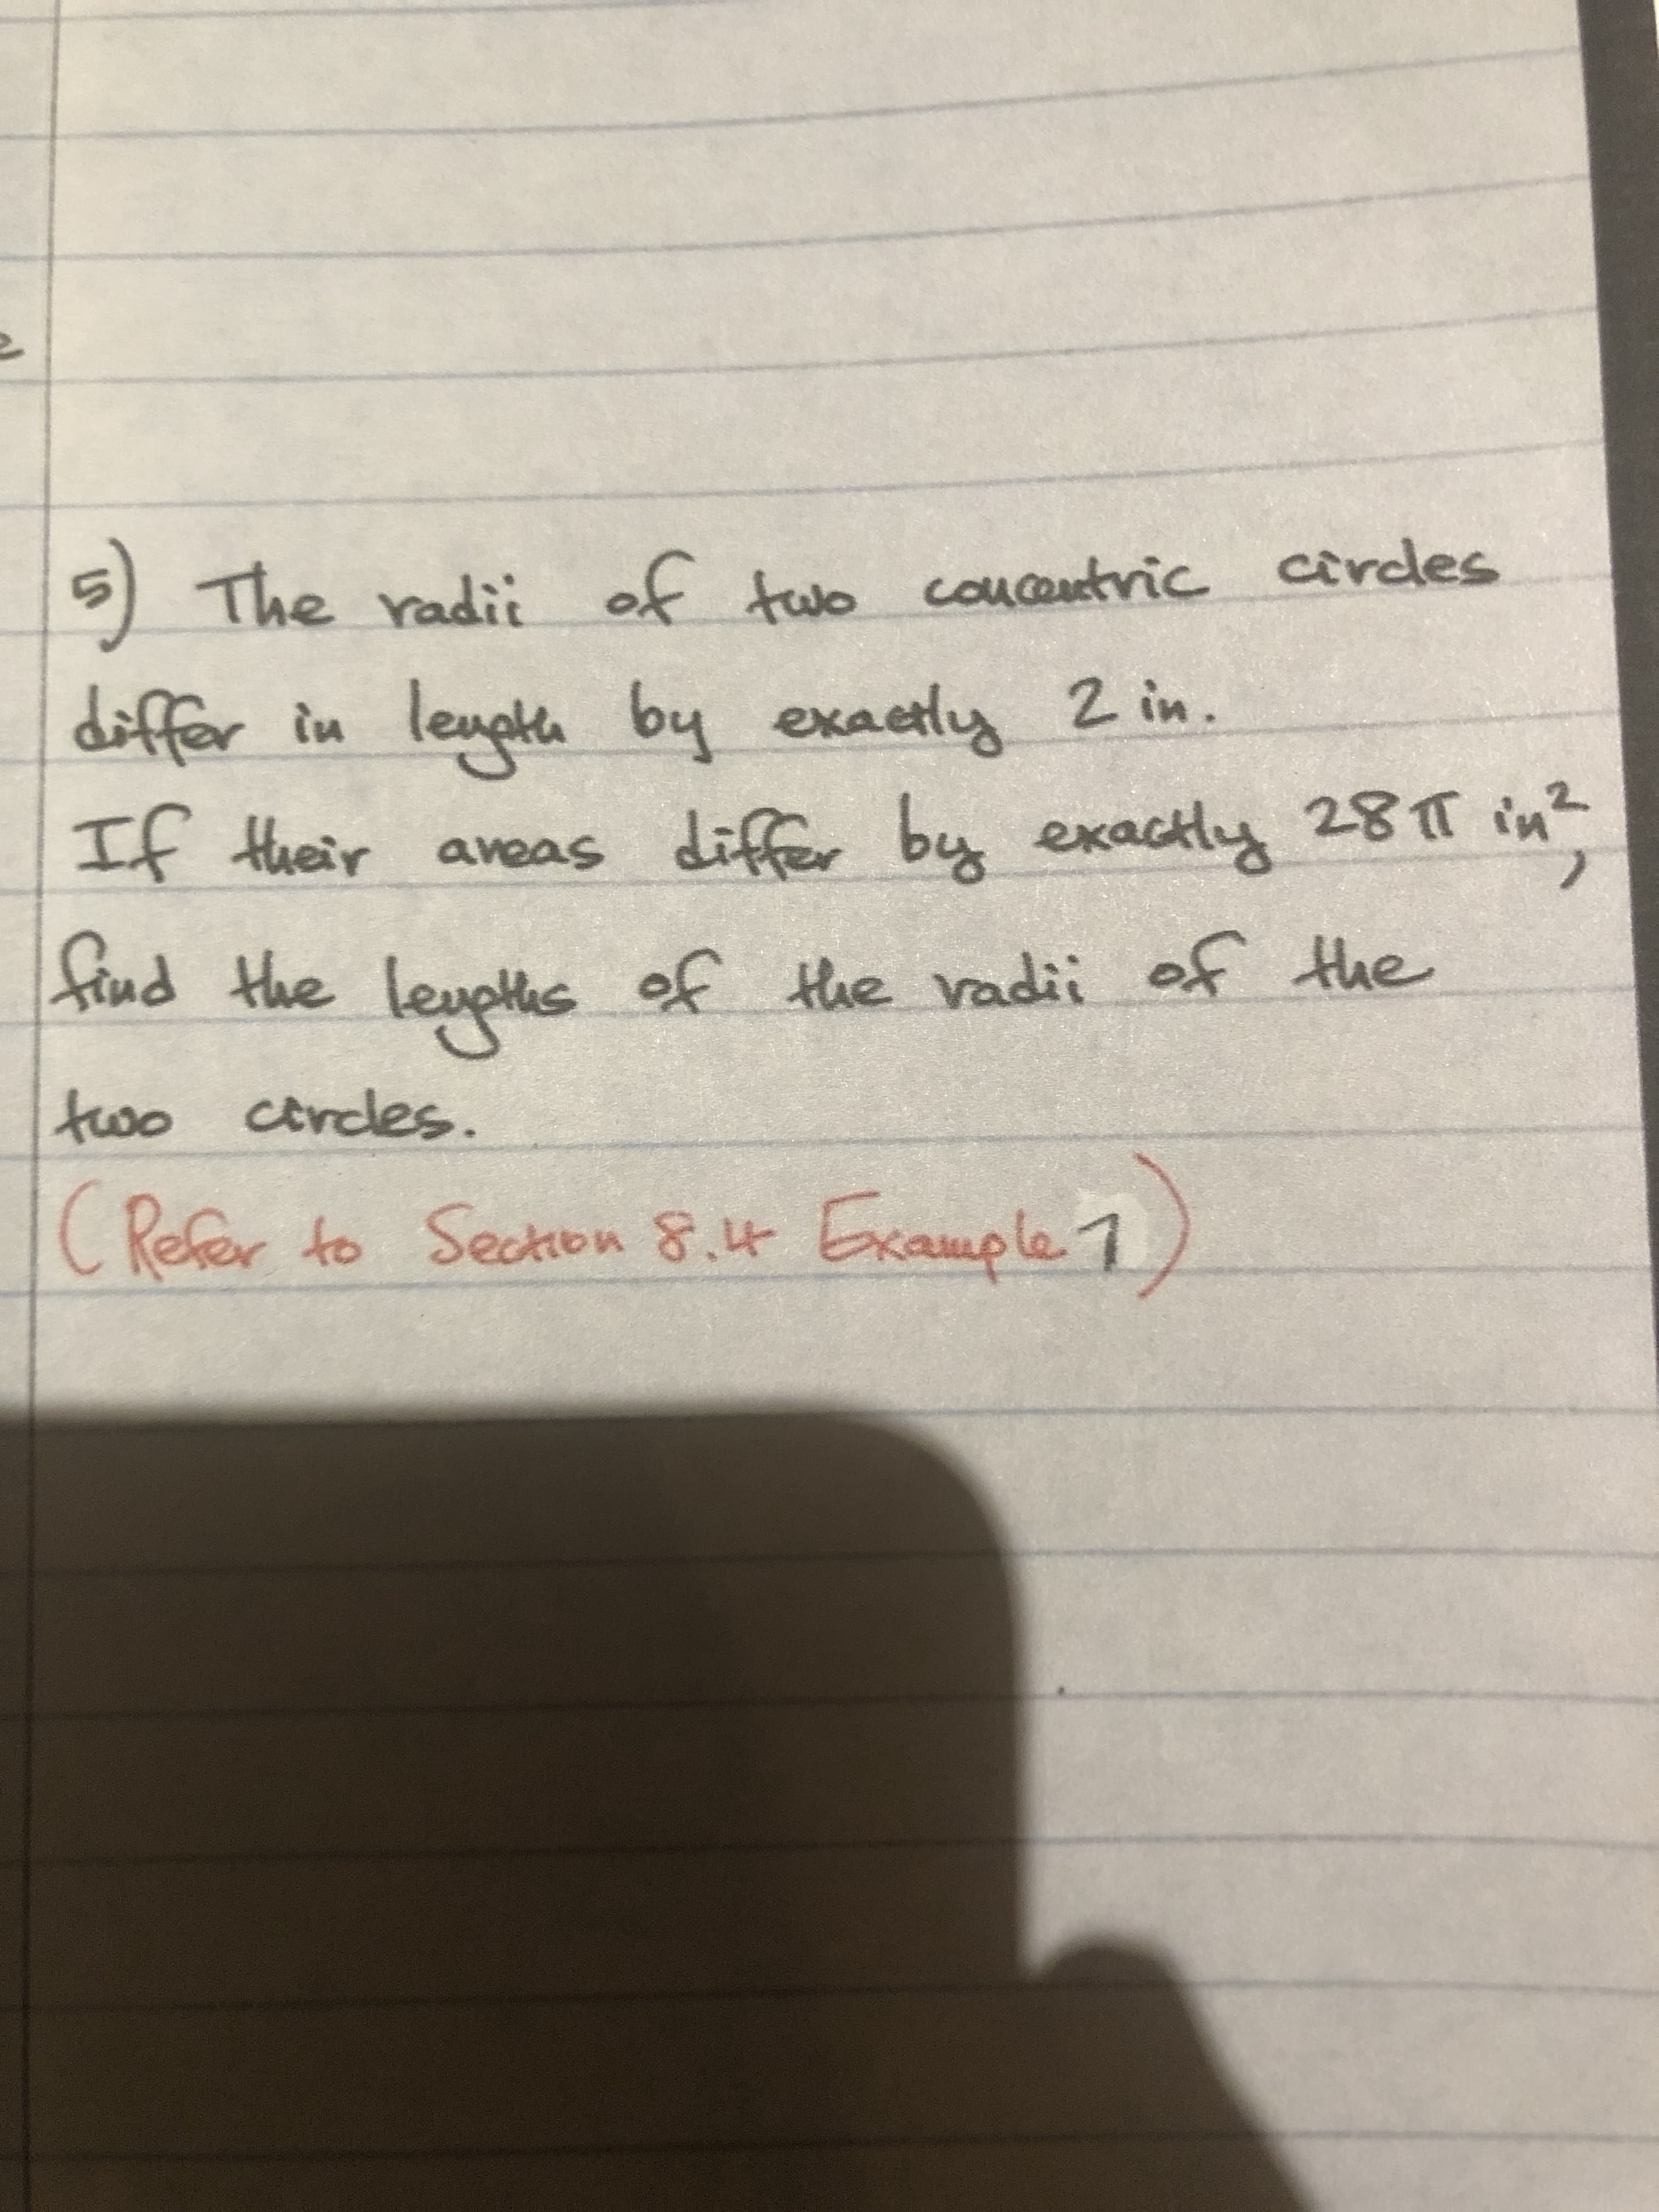 5) The radii of two concentric circles
differ in length by exactly 2 in.
If their areas differ by exactly 28π in²,
find the lengths of the radii of the
two circles.
(Refer to Section 8.4 Example 7)